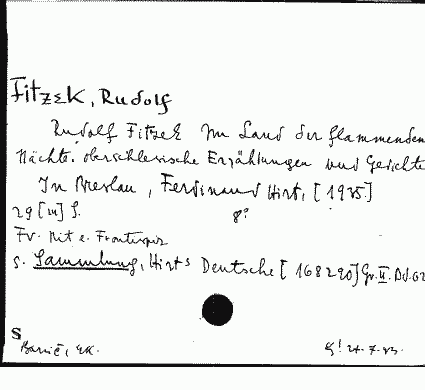 Fitzek, Rudolf
Rudolf Fitzek Im Land der flammenden
Nächte. oberschlesische Erzählungen und Gedichte
In Breslau, Ferdinand Hirt, [1925]
29 [III] S. 8°
Fv. Mit e. Frontispiz
s. Sammlung, Hirts Deutsche [168290] Gr. II. Bd. 62
S
Barič, EK. 27.7.83.